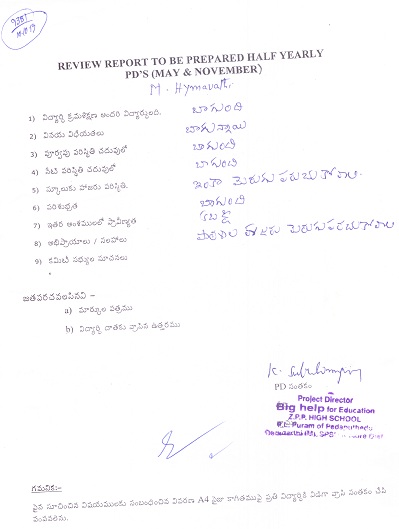 9387
10.10.19
REVIEW REPORT TO BE PREPARED HALF YEARLY
PD'S (MAY & NOVEMBER)
M. Hymavathi
1) విద్యార్థి క్రమశిక్షణ అందరి విద్యార్థులది. బాగుంది
2) వినయ విధేయతలు బాగున్నాయి
3) పూర్వపు పరిస్థితి చదువులో బాగుంది
4) నేటి పరిస్థితి చదువులో బాగుంది
5) స్కూలుకు హాజరు పరిస్థితి. ఇంకా మెరుగు పరుచుకోవాలి.
6) పరిశుభ్రత బాగుంది
7) ఇతర అంశములలో ప్రావీణ్యత కబడ్డీ
8) అభిప్రాయాలు / సలహాలు పాఠశాల హాజరు మెరుగుపరచుకోవాలి
9) కమిటి సభ్యుల సూచనలు
జతపరచవలసినవి –
a) మార్కుల పత్రము
b) విద్యార్థి దాతకు వ్రాసిన ఉత్తరము
PD సంతకం
Project Director
Big help for Education
Z.P.P. HIGH SCHOOL
Puram of Pedaputhedu
గమనిక:-
పైన సూచించిన విషయములకు సంబంధించిన వివరణ A4 సైజు కాగితముపై ప్రతి విద్యార్థికి విడిగా వ్రాసి సంతకం చేసి
పంపవలెను.